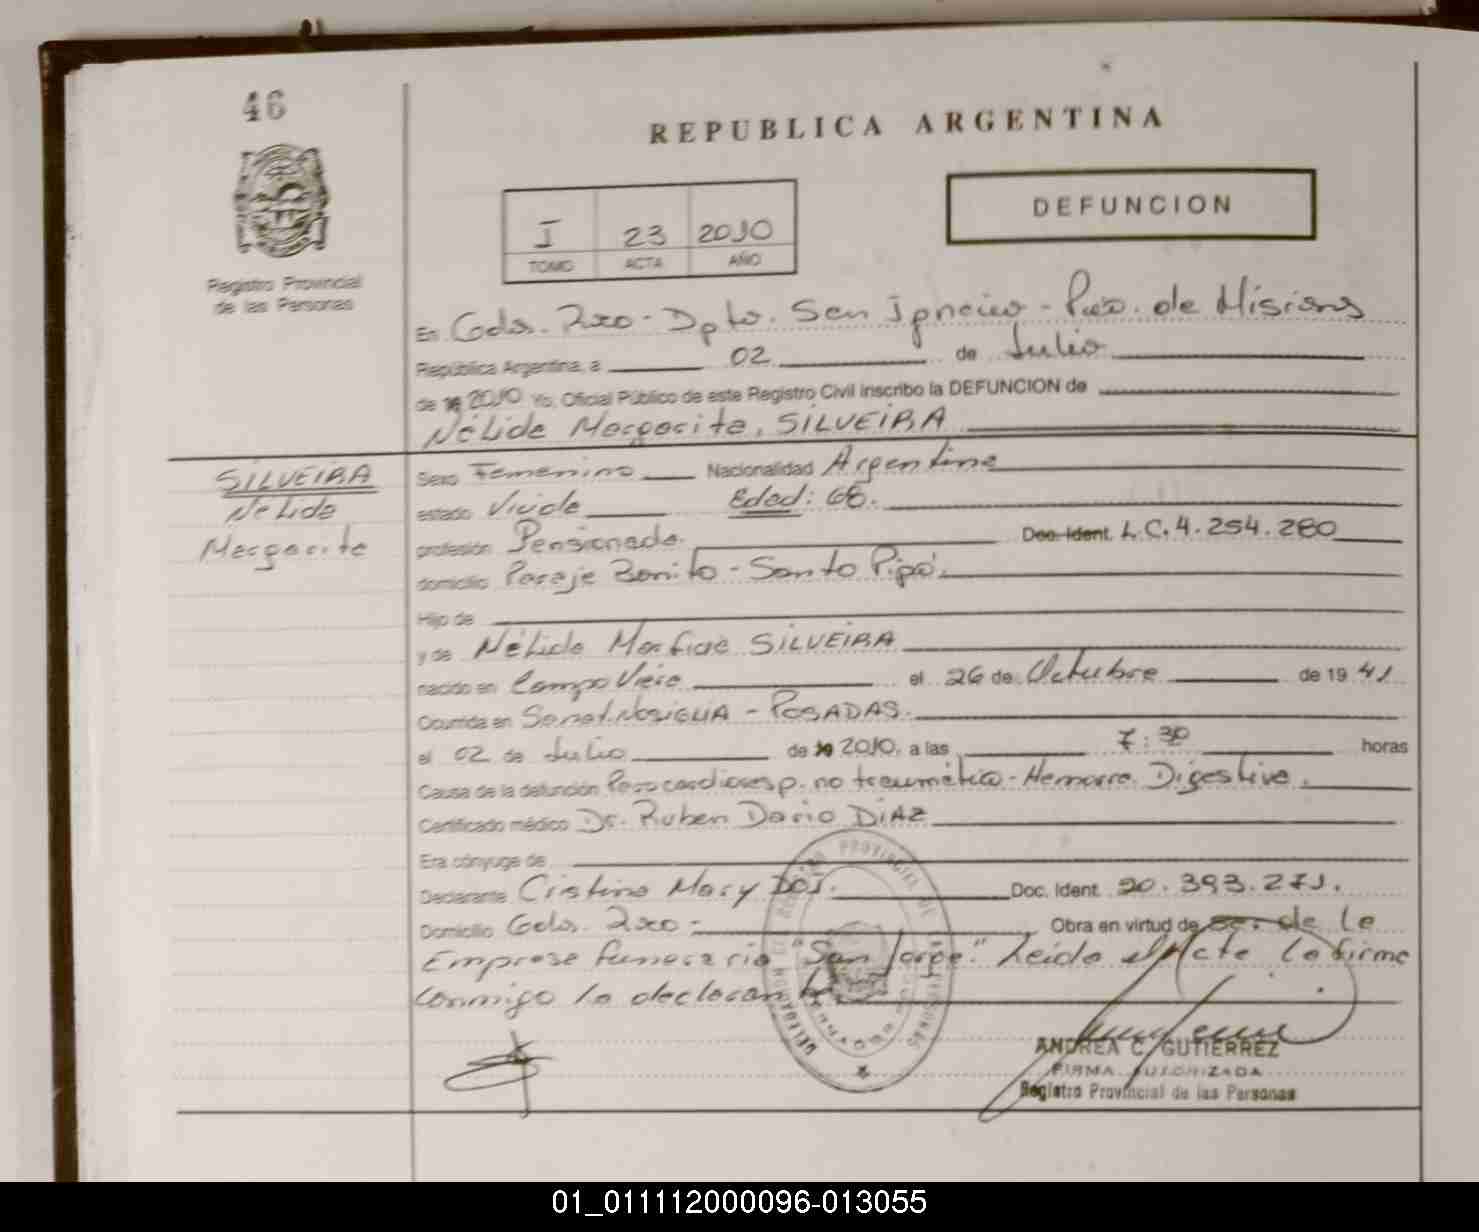 46
REPUBLICA ARGENTINA
DEFUNCION
I 23 2010
TOMO ACTA AÑO
Registro Provincial
de las Personas
En Gdor. Roca - Dpto. San Ignacio - Pcia. de Misiones
República Argentina, a 02 de Julio
de 19 2010 Yo, Oficial Público de este Registro Civil inscribo la DEFUNCION de
Nélida Margarita, SILVEIRA
SILVEIRA
Nélida
Margarita
Sexo Femenino Nacionalidad Argentina
estado Viuda Edad: 68.
profesión Pensionada. Doc. Ident. L.C. 4.254.280
domicilio Paraje Bonito - Santo Pipó.
Hijo de
y de Nélida SILVEIRA
nacido en Campo Viera el 26 de Octubre de 19 41
Ocurrida en Sanat. NOSIGLIA - POSADAS.
el 02 de Julio de 19 2010, a las 7:30 horas
Causa de la defunción Paro cardioresp. no traumático - Hemorra. Digestiva.
Certificado médico Dr. Ruben Dario DIAZ
Era cónyuge de
Declarante Cristina Mary DOS. Doc. Ident. 20.393.271.
Domicilio Gdor. Roca - Obra en virtud de ser de la
Empresa funeraria "San Jorge". Leida el Acta la firma
conmigo la declarante
REGISTRO PROVINCIAL DE LAS PERSONAS
DELEGACION
ANDREA C. GUTIERREZ
FIRMA AUTORIZADA
Registro Provincial de las Personas
01_011112000096-013055